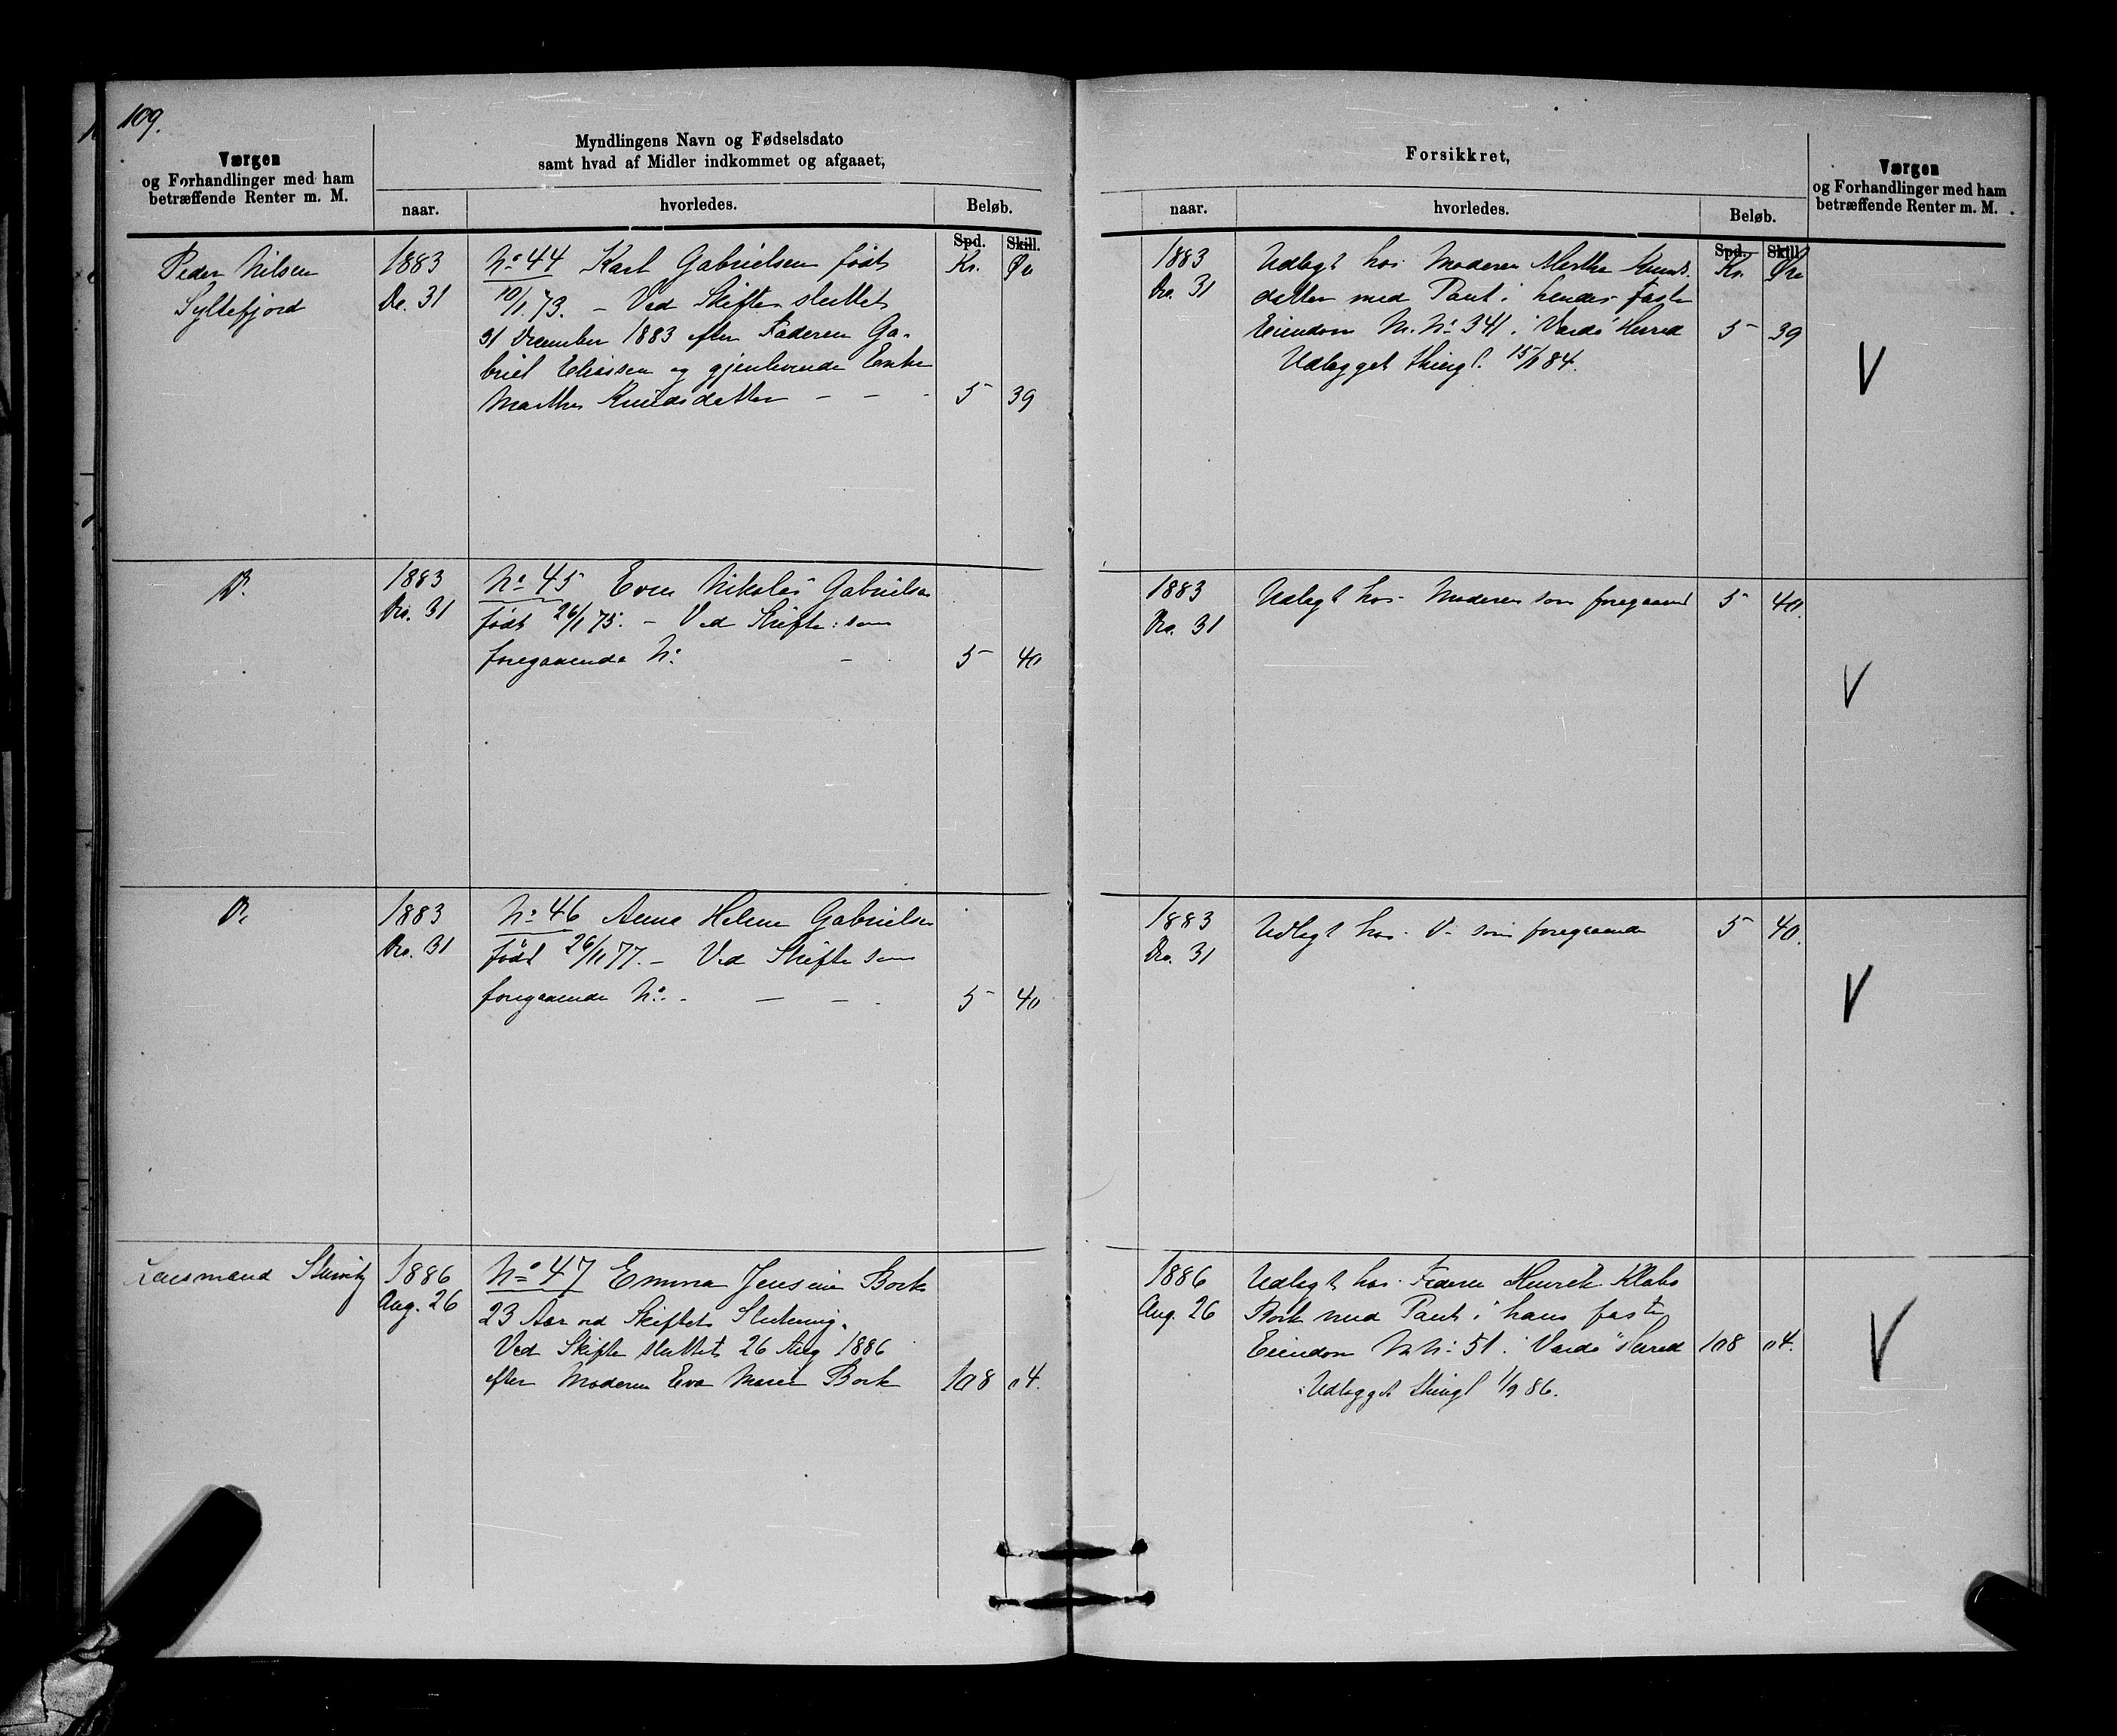 109.
Værgen
og Forhandlinger med ham
betræffende Renter m. M.
Myndlingens Navn og Fødselsdato
samt hvad af Midler indkommet og afgaaet,
naar.
hvorledes.
Beløb.
Spd. Skill.
Kr. Øre
Peder Nilsen
Syltefjord
1883
De. 31
No 44 Karl Gabrielsen født
10/1 73. - Ved Skifte sluttet
31 December 1883 efter Faderen Ga-
briel Eliassen og gjenlevende Enke
Marthe Knudsdatter - - - 5 39
Do.
1883
Dec. 31
No 45 Even Nikolai Gabrielsen
født 26/1 75. - Ved Skifte: som
foregaaende No. - 5 40
Do
1883
Dec. 31
No 46 Anna Helene Gabrielsen
født 26/11 77. - Ved Skifte som
foregaaende No. - - - 5 40
Lensmand
1886
Aug. 26
No 47 Emma Jensine Bork
23 Aar ved Skiftets Slutning.
Ved Skifte sluttet 26 Aug 1886
efter Moderen Eva Marie Bork 108 04.
Forsikret,
naar.
hvorledes.
Beløb.
Spd. Skill.
Kr. Øre
Værgen
og Forhandlinger med ham
betræffende Renter m. M.
1883
Dec. 31
Udlagt hos Moderen Marthe Knuds-
datter med Pant i hendes faste
Eiendom M. No 341 i Vardø Herred 5 39
Udlægget thingl. 15/1 84.
V
1883
Dec. 31
Udlagt hos Moderen som foregaaend 5 40.
V
1883
Dec. 31
Udlagt hos Do som foregaaende 5 40.
V
1886
Aug. 26
Udlagt hos Faderen Henrik Klabo
Bork med Pant i hans faste
Eiendom M No: 51 i Vardø Herred 108 04.
Udlægget thingl 1/9 86.
V